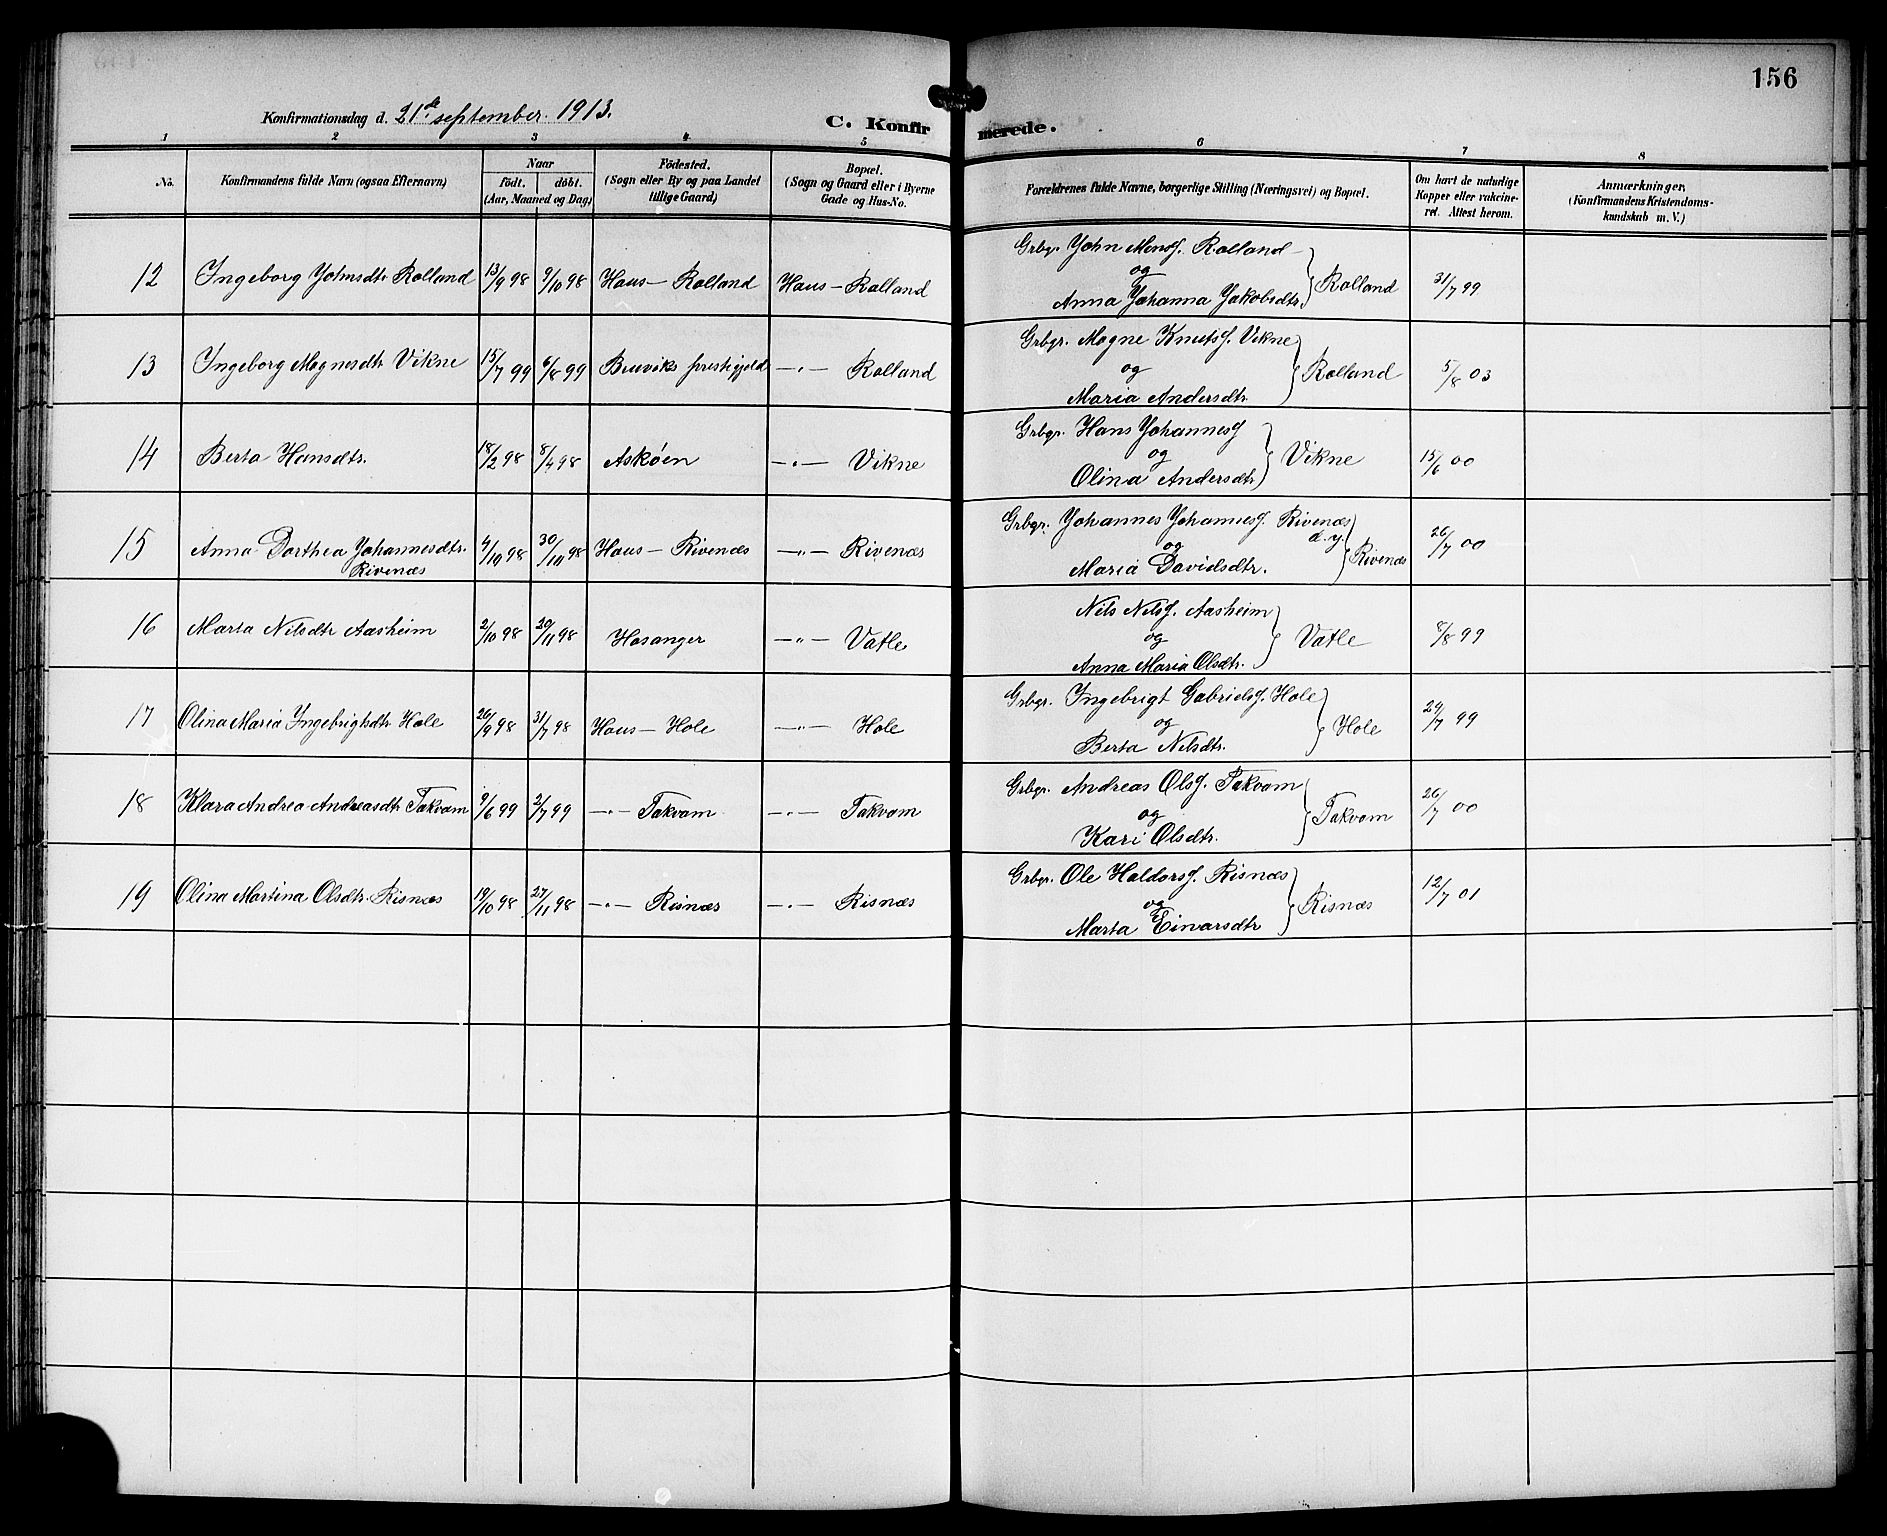 156
Konfirmationsdag d. 21de september 1913.
C. Konfirmerede.
1 2 3 4 5 6 7 8
No.
Konfirmandens fulde Navn (ogsaa Efternavn)
Naar
født. døbt.
(Aar, Maaned og Dag)
Fødested.
(Sogn eller By og paa Landet
tillige Gaard)
Bopæl.
(Sogn og Gaard eller i Byerne
Gade og Hus-No.
Forældrenes fulde Navne, borgerlige Stilling (Næringsvei) og Bopæl.
Om havt de naturlige
Kopper eller vakcine-
ret. Attest herom.
Anmærkninger,
(Konfirmandens Kristendoms-
kundskab m. V.)
12 Ingeborg Johnsdtr Rolland 13/9 98 9/10 98 Haus — Rolland Haus — Rolland
Grbgr. John Monsf. Rolland
og
Anna Johanna Jakobsdtr. } Rolland 31/7 99
13 Ingeborg Mognesdtr Vikne 15/7 99 6/8 99 Bruviks prestegjeld —"— Rolland
Grbgr. Mogne Knutsf. Vikne
og
Maria Andersdtr. } Rolland 5/8 03
14 Berta Hansdtr. 18/2 98 8/4 98 Askøen —"— Vikne
Grbgr. Hans Johannesf
og
Olina Andersdtr } Vikne 15/6 00
15 Anna Dorthea Johannesdtr. 4/10 98 30/10 98 Haus — Rivenæs —"— Rivenæs
Rivenæs
Grbgr. Johannes Johannesf. Rivenæs
d.y.
og
Maria Davidsdtr. } Rivenæs 26/7 00
16 Marta Nilsdtr Aasheim 2/10 98 20/11 98 Hosanger —"— Vatle
Nils Nilsf. Aasheim
og
Anna Maria Olsdtr. } Vatle 8/8 99
17 Olina Maria Ingebrigtsdtr Hole 20/9 98 31/7 98 Haus — Hole —"— Hole
Grbgr. Ingebrigt Gabrielsf. Hole
og
Berta Nilsdtr. } Hole 29/7 99
18 Klara Andrea Andreasdtr Takvam 9/6 99 2/7 99 —"— Takvam —"— Takvam
Grbgr. Andreas Olsf. Takvam
og
Kari Olsdtr. } Takvam 26/7 00
19 Olina Martina Olsdtr. Risnæs 19/10 98 27/11 98 —"— Risnæs —"— Risnæs
Grbgr. Ole Haldorsf. Risnæs
og
Marta Einarsdtr } Risnæs 12/7 01